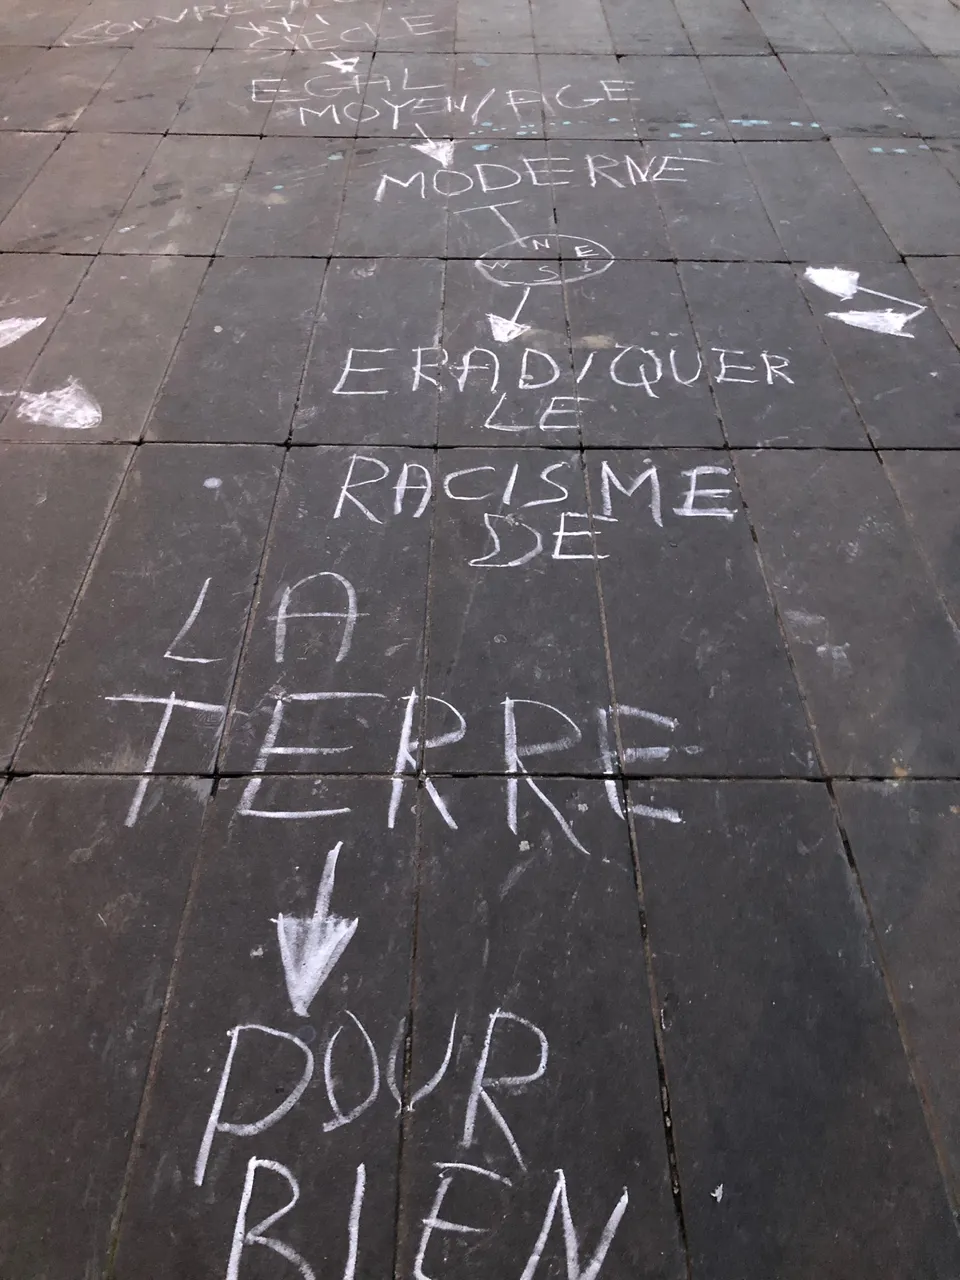 XXI
SIECLE
EGAL
MOYEN/AGE
MODERNE
N E
W S
ERADIQUER
LE
RACISME
DE
LA
TERRE
POUR
BIEN